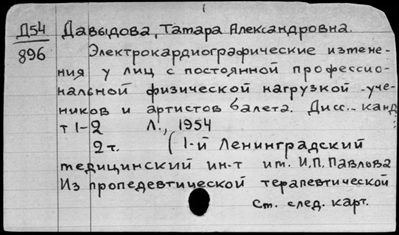 Д54 Давыдова, Тамара Александровна.
896 Электрокардиографические измене-
ния у лиц с постоянной профессио-
нальной физической нагрузкой -уче-
ников и артистов балета. Дисс.- канд.
т 1-2 Л., 1954
2т. (1-й Ленинградский
медицинский ин-т им. И.П. Павлова
Из пропедевтической терапевтической
См. след. карт.